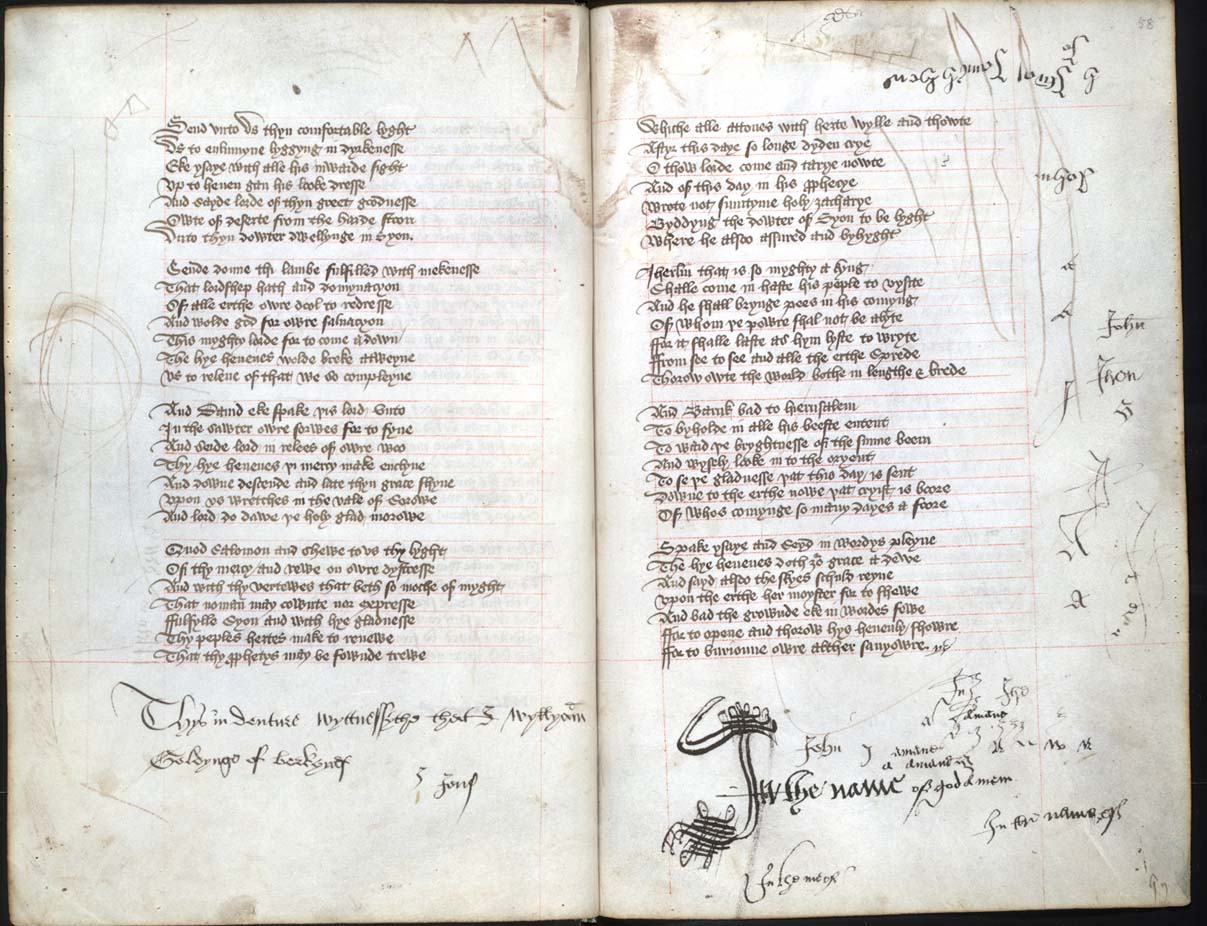 Send vnto vs thyn comfortable lyght
Vs to enlumyne lyggyng in dyrkenesse
Eke ysaye with alle his inwarde sight
Vp to heven gan his looke dresse
And sayde lorde of thyn greet goodnesse
Owte of deserte from the harde stoon
Vnto thyn dowter dwellynge in Syon.
Sende doune thi lambe fulfilled with mekenesse
That lordshep hath and domynacyon
Of alle erthe owre dool to redresse
And wolde god for owre saluacyon
This myghty lorde for to come adown
The hye hevenes wolde broke atweyne
vs to releve of that we so compleyne
And Dauid eke spake þis lord vnto
In the sawter owre sorwes for to fyne
And seide lord in relees of owre woo
Thy hye hevenes þi mercy make enclyne
And downe descende and late thyn grace shyne
Vpon vs wretches in the vale of sorowe
And lord do dawe þe holy glad morowe
Quod Salomon and shewe to vs thy lyght
Of thy mercy and rewe on owre dystresse
And with thy vertewes that beth so moche of myght
That noman may cownte nor expresse
ffulfylle Syon and with hye gladnesse
Thy peples hertes make to renewe
That thy pphetys may be fownde trewe
Thys in denture wyttnessythe that I wyllyam
Goldynge of
58
Whiche alle attones with herte wylle and thowte
Aftyr this daye so longe dyden crye
O thow lorde come and tarye nowte
And of this day in his pphecye
Wrote not sumtyme holy zacharye
Byddyng the dowter of Syon to be lyght
Where he also assured and byhyght
Iherlm that is so myghty a kyng
Shalle come in haste his peple to vysite
And he shall brynge pees in his comyng
Of whom þe powre shal not be alyte
ffor it shalle laste as hym lyste to wryte
ffrom see to see and alle the erthe sprede
Thorow owte the world bothe in lengthe & brede
And Baruk bad to hierusalem
To byholde in alle his beeste entent
To ward þe bryghtnesse of the sunne beem
And wysely looke in to the oryent
To se þe gladnesse þat this day is sent
Downe to the erthe nowe þat cryst is boore
Of whos comynge so many dayes a foore
Spake ysaye and seyd in wordys pleyne
The hye hevenes doth grace a dewe
And sayd also the skyes schuld reyne
vpon the erthe her moyster for to shewe
And bad the grownde eke in wordes fewe
ffor to opene and thorow hys hevenly showre
ffor to burionne owre alther savyowre
John
Jhon
John
amand
amand
In the name of god amen
In the name
In the